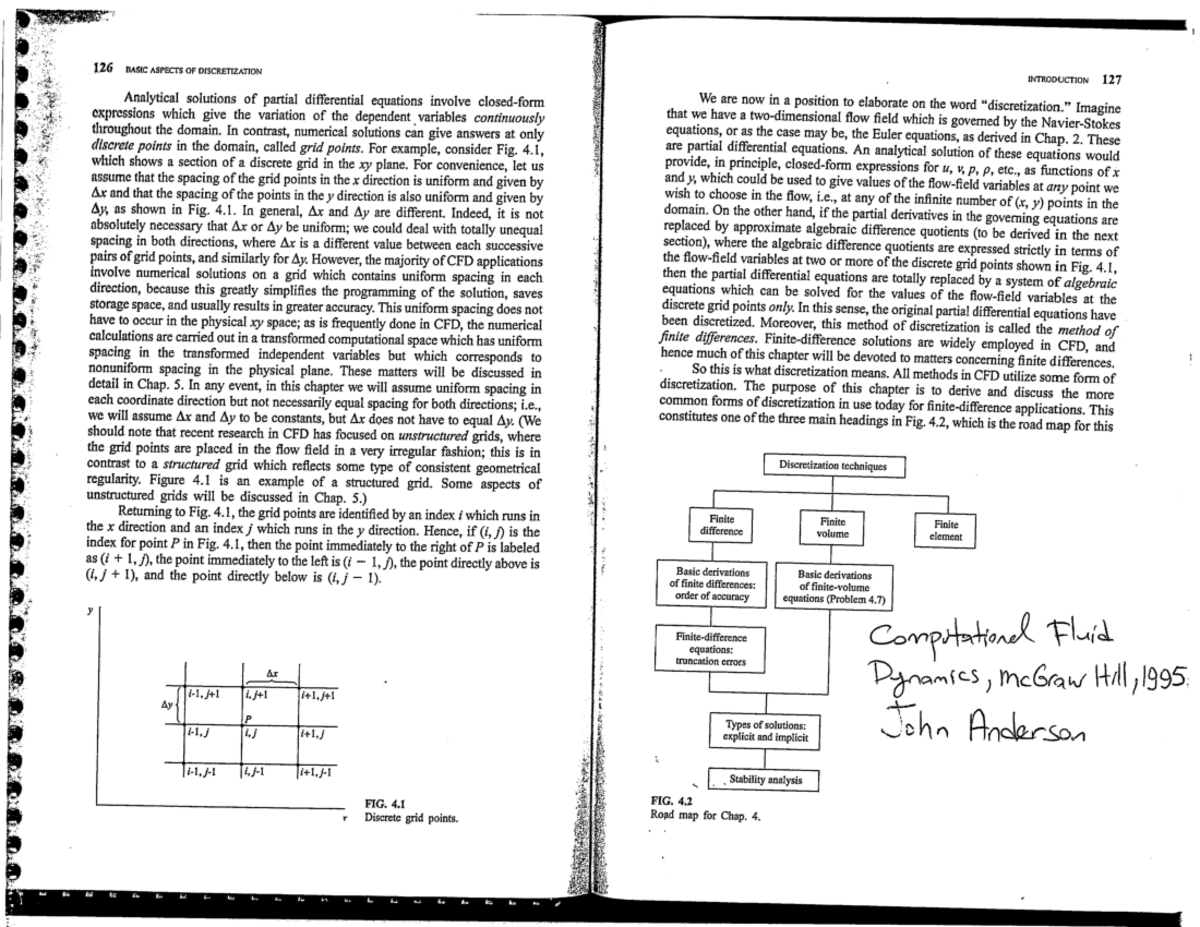 126 BASIC ASPECTS OF DISCRETIZATION
Analytical solutions of partial differential equations involve closed-form
expressions which give the variation of the dependent variables continuously
throughout the domain. In contrast, numerical solutions can give answers at only
discrete points in the domain, called grid points. For example, consider Fig. 4.1,
which shows a section of a discrete grid in the xy plane. For convenience, let us
assume that the spacing of the grid points in the x direction is uniform and given by
Δx and that the spacing of the points in the y direction is also uniform and given by
Δy, as shown in Fig. 4.1. In general, Δx and Δy are different. Indeed, it is not
absolutely necessary that Δx or Δy be uniform; we could deal with totally unequal
spacing in both directions, where Δx is a different value between each successive
pairs of grid points, and similarly for Δy. However, the majority of CFD applications
involve numerical solutions on a grid which contains uniform spacing in each
direction, because this greatly simplifies the programming of the solution, saves
storage space, and usually results in greater accuracy. This uniform spacing does not
have to occur in the physical xy space; as is frequently done in CFD, the numerical
calculations are carried out in a transformed computational space which has uniform
spacing in the transformed independent variables but which corresponds to
nonuniform spacing in the physical plane. These matters will be discussed in
detail in Chap. 5. In any event, in this chapter we will assume uniform spacing in
each coordinate direction but not necessarily equal spacing for both directions; i.e.,
we will assume Δx and Δy to be constants, but Δx does not have to equal Δy. (We
should note that recent research in CFD has focused on unstructured grids, where
the grid points are placed in the flow field in a very irregular fashion; this is in
contrast to a structured grid which reflects some type of consistent geometrical
regularity. Figure 4.1 is an example of a structured grid. Some aspects of
unstructured grids will be discussed in Chap. 5.)
Returning to Fig. 4.1, the grid points are identified by an index i which runs in
the x direction and an index j which runs in the y direction. Hence, if (i, j) is the
index for point P in Fig. 4.1, then the point immediately to the right of P is labeled
as (i + 1, j), the point immediately to the left is (i − 1, j), the point directly above is
(i, j + 1), and the point directly below is (i, j − 1).
y
Δx
Δy
i-1, j+1 i, j+1 i+1, j+1
P
i-1, j i, j i+1, j
i-1, j-1 i, j-1 i+1, j-1
FIG. 4.1
Discrete grid points.
INTRODUCTION 127
We are now in a position to elaborate on the word “discretization.” Imagine
that we have a two-dimensional flow field which is governed by the Navier-Stokes
equations, or as the case may be, the Euler equations, as derived in Chap. 2. These
are partial differential equations. An analytical solution of these equations would
provide, in principle, closed-form expressions for u, v, p, ρ, etc., as functions of x
and y, which could be used to give values of the flow-field variables at any point we
wish to choose in the flow, i.e., at any of the infinite number of (x, y) points in the
domain. On the other hand, if the partial derivatives in the governing equations are
replaced by approximate algebraic difference quotients (to be derived in the next
section), where the algebraic difference quotients are expressed strictly in terms of
the flow-field variables at two or more of the discrete grid points shown in Fig. 4.1,
then the partial differential equations are totally replaced by a system of algebraic
equations which can be solved for the values of the flow-field variables at the
discrete grid points only. In this sense, the original partial differential equations have
been discretized. Moreover, this method of discretization is called the method of
finite differences. Finite-difference solutions are widely employed in CFD, and
hence much of this chapter will be devoted to matters concerning finite differences.
So this is what discretization means. All methods in CFD utilize some form of
discretization. The purpose of this chapter is to derive and discuss the more
common forms of discretization in use today for finite-difference applications. This
constitutes one of the three main headings in Fig. 4.2, which is the road map for this
Discretization techniques
Finite
difference
Finite
volume
Finite
element
Basic derivations
of finite differences:
order of accuracy
Basic derivations
of finite-volume
equations (Problem 4.7)
Finite-difference
equations:
truncation errors
Types of solutions:
explicit and implicit
Stability analysis
FIG. 4.2
Road map for Chap. 4.
Computational Fluid
Dynamics, McGraw Hill, 1995.
John Anderson